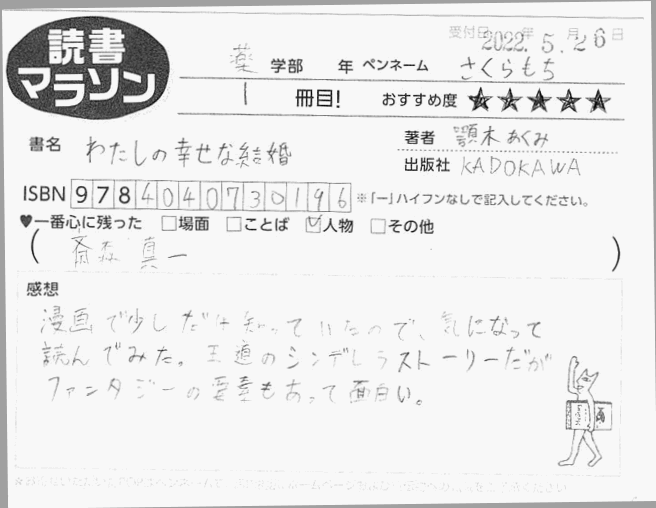 受付日 2022年 5月 26日
読書
マラソン
薬 学部 年 ペンネーム さくらもち
1 冊目! おすすめ度 ★★★★★
書名 わたしの幸せな結婚
著者 顎木あくみ
出版社 KADOKAWA
ISBN 9784040730196 ※「ー」ハイフンなしで記入してください。
♥一番心に残った □場面 □ことば ☑人物 □その他
(斎森 真一)
感想
漫画で少しだけ知っていたので、気になって
読んでみた。王道のシンデレラストーリーだが
ファンタジーの要素もあって面白い。